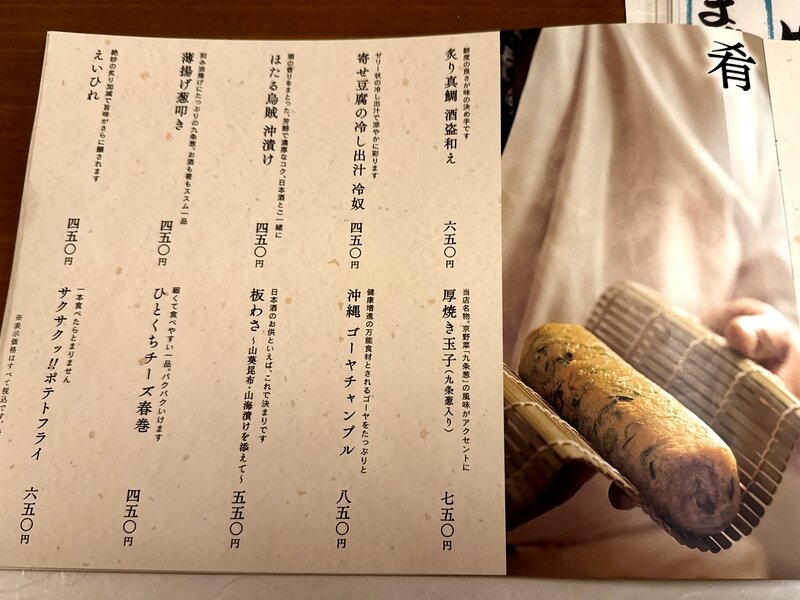 肴
鮮度の良さが味の決め手です
炙り真鯛 酒盗和え
六五〇円
ゼリー状の冷し出汁で涼やかに彩ります
寄せ豆腐の冷し出汁 冷奴
四五〇円
潮の香りをまとった、芳醇で濃厚なコク。日本酒とご一緒に
ほたる烏賊 沖漬け
四五〇円
刻み油揚げにたっぷりの九条葱。お酒も箸もススム一品
薄揚げ葱叩き
四五〇円
絶妙の炙り加減で旨味がさらに醸されます
えいひれ
四五〇円
当店名物。京野菜「九条葱」の風味がアクセントに
厚焼き玉子(九条葱入り)
七五〇円
健康増進の万能食材とされるゴーヤをたっぷりと
沖縄 ゴーヤチャンプル
八五〇円
日本酒のお供といえば、これで決まりです
板わさ 〜山葵昆布・山海漬けを添えて〜
五五〇円
細くて食べやすい一品。パクパクいけます
ひとくちチーズ春巻
四五〇円
一本食べたらとまりません
サクサクッ!!ポテトフライ
六五〇円
※表示価格はすべて税込です。